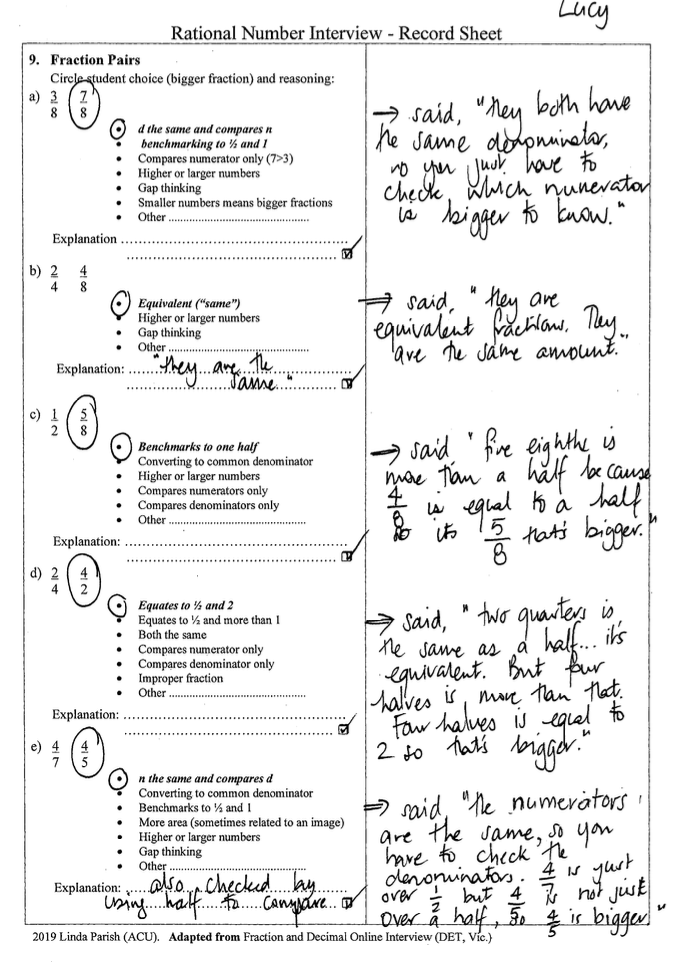 Lucy
Rational Number Interview - Record Sheet
9. Fraction Pairs
Circle student choice (bigger fraction) and reasoning:
a) 3/8 7/8
• d the same and compares n
• benchmarking to ½ and 1
• Compares numerator only (7>3)
• Higher or larger numbers
• Gap thinking
• Smaller numbers means bigger fractions
• Other ..................................................
Explanation ..................................................
→ said, "they both have
the same denominator,
so you just have to
check which numerator
is bigger to know."
b) 2/4 4/8
• Equivalent ("same")
• Higher or larger numbers
• Gap thinking
• Other ..................................................
Explanation: "they are the
same"
⇒ said, "they are
equivalent fractions. They
are the same amount."
c) 1/2 5/8
• Benchmarks to one half
• Converting to common denominator
• Higher or larger numbers
• Compares numerators only
• Compares denominators only
• Other ..................................................
Explanation: ..................................................
→ said "five eighths is
more than a half because
4/8 is equal to a half
so its 5/8 that's bigger."
d) 2/4 4/2
• Equates to ½ and 2
• Equates to ½ and more than 1
• Both the same
• Compares numerator only
• Compares denominator only
• Improper fraction
• Other ..................................................
Explanation: ..................................................
⇒ said, "two quarters is
the same as a half... it's
equivalent. But four
halves is more than that.
Four halves is equal to
2 so that's bigger."
e) 4/7 4/5
• n the same and compares d
• Converting to common denominator
• Benchmarks to ½ and 1
• More area (sometimes related to an image)
• Higher or larger numbers
• Gap thinking
• Other ..................................................
Explanation: also checked by
using half to compare
⇒ said "the numerators
are the same, so you
have to check the
denominators. 4/7 is just
over 1/2 but 4/5 is not just
over a half, so 4/5 is bigger."
2019 Linda Parish (ACU). Adapted from Fraction and Decimal Online Interview (DET, Vic.)